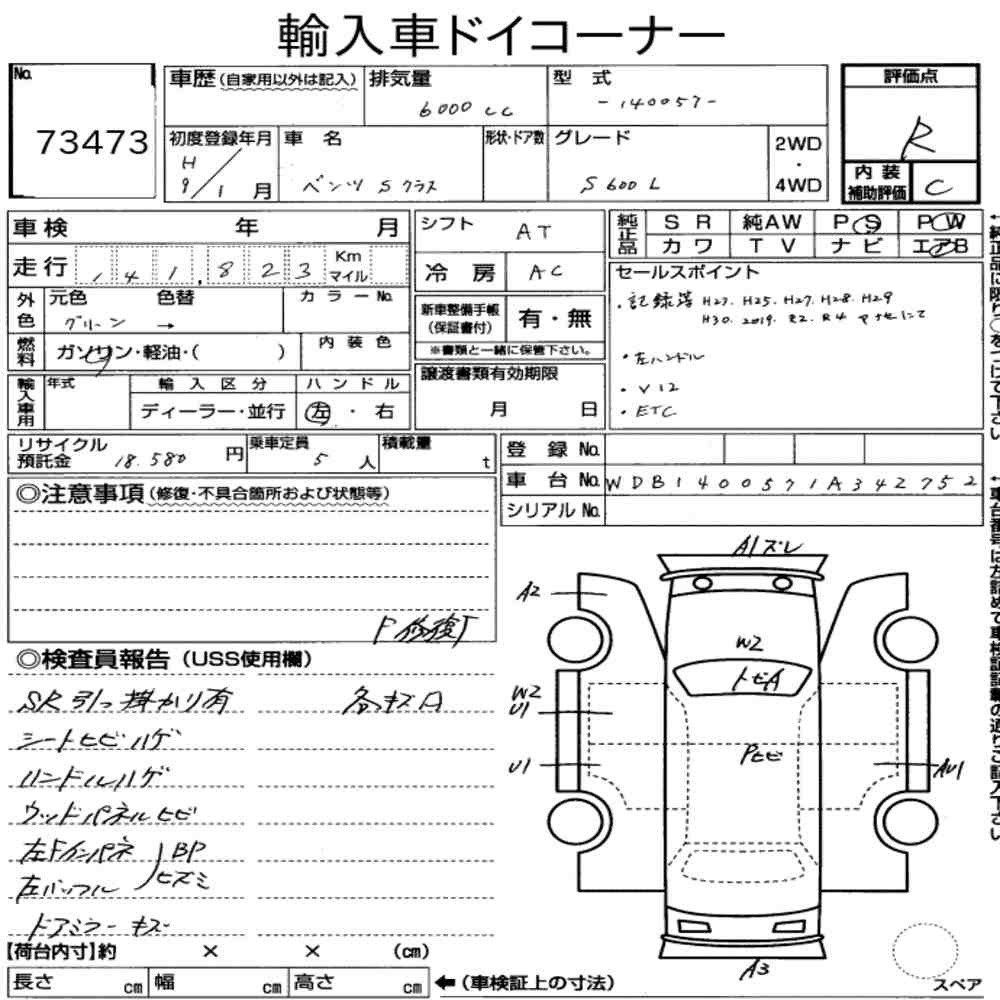 輸入車ドイコーナー
No. 73473
車歴 (自家用以外は記入)
排気量 6000 cc
型式 -140057-
評価点 R
初度登録年月 H 9/1月
車名 ベンツ Sクラス
形状・ドア数
グレード S600L
2WD・4WD
内装補助評価 C
車検 年 月
シフト AT
純正品 SR 純AW PS PW
カワ TV ナビ エアB
走行 141,823 Km マイル
冷房 AC
セールスポイント
・記録簿 H23. H25. H27. H28. H29
H30. 2019. R2. R4
・左ハンドル
・V12
・ETC
外色 元色 グリーン → 色替 カラーNo.
新車整備手帳(保証書付) 有・無
※書類と一緒に保管下さい。
燃料 ガソリン・軽油・( ) 内装色
譲渡書類有効期限
月 日
輸入車用 年式 輸入区分 ハンドル
ディーラー・並行 左・右
リサイクル預託金 18.580 円
乗車定員 5 人
積載量 t
登録No.
車台No. WDB1400571A342752
シリアルNo.
◎注意事項 (修復・不具合箇所および状態等)
F修復
◎検査員報告 (USS使用欄)
SR引っ掛かり有 各キズ凹
シートヒビハゲ
ハンドルハゲ
ウッドパネルヒビ
左Fインパネ BP
左バッフル ヒズミ
ドアミラーキズ
A1ズレ
A2
W2
トビA
W2
U1
Pヒビ
U1
AU1
A3
スペア
【荷台内寸】約 × × (cm)
長さ cm 幅 cm 高さ cm ←(車検証上の寸法)
↑純正品に限り○をつけて下さい
↑車台番号は左詰めで車検証記載の通りご記入下さい